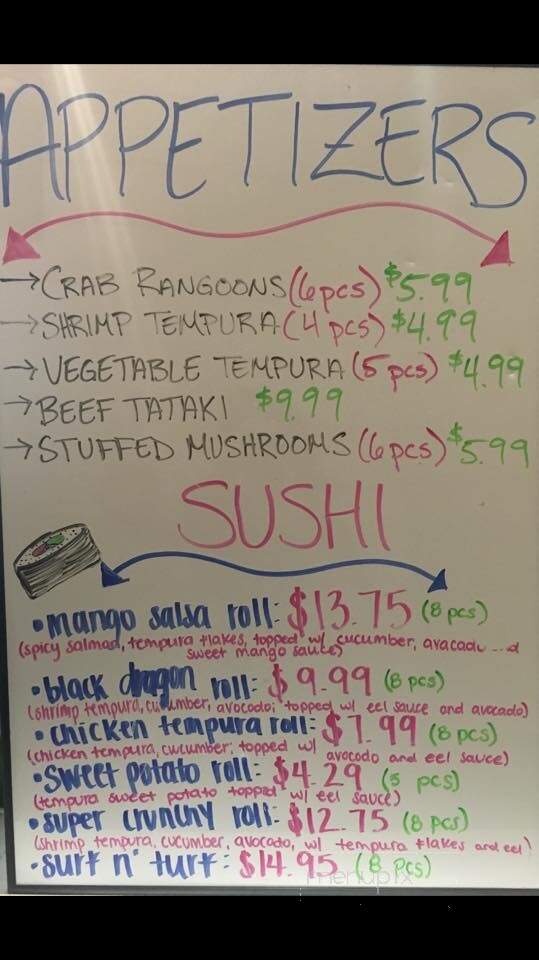 APPETIZERS
→CRAB RANGOONS (6pcs) $5.99
→SHRIMP TEMPURA (4 pcs) $4.99
→VEGETABLE TEMPURA (5 pcs) $4.99
→BEEF TATAKI $9.99
→STUFFED MUSHROOMS (6pcs) $5.99
SUSHI
•mango salsa roll: $13.75 (8 pcs)
(spicy salmon, tempura flakes, topped w/ cucumber, avacadu
sweet mango sauce)
•black dragon roll: $9.99 (8 pcs)
(shrimp tempura, cucumber, avocodo; topped w/ eel sauce and avocado)
•chicken tempura roll: $7.99 (8 pcs)
(chicken tempura, cucumber; topped w/ avocodo and eel sauce)
•Sweet potato roll: $4.29 (5 pcs)
(tempura sweet potato topped w/ eel sauce)
•super crunchy roll: $12.75 (8 pcs)
(shrimp tempura, cucumber, avocado, w/ tempura flakes and eel)
•surf n' turf: $14.95 (8 pcs)
menupix